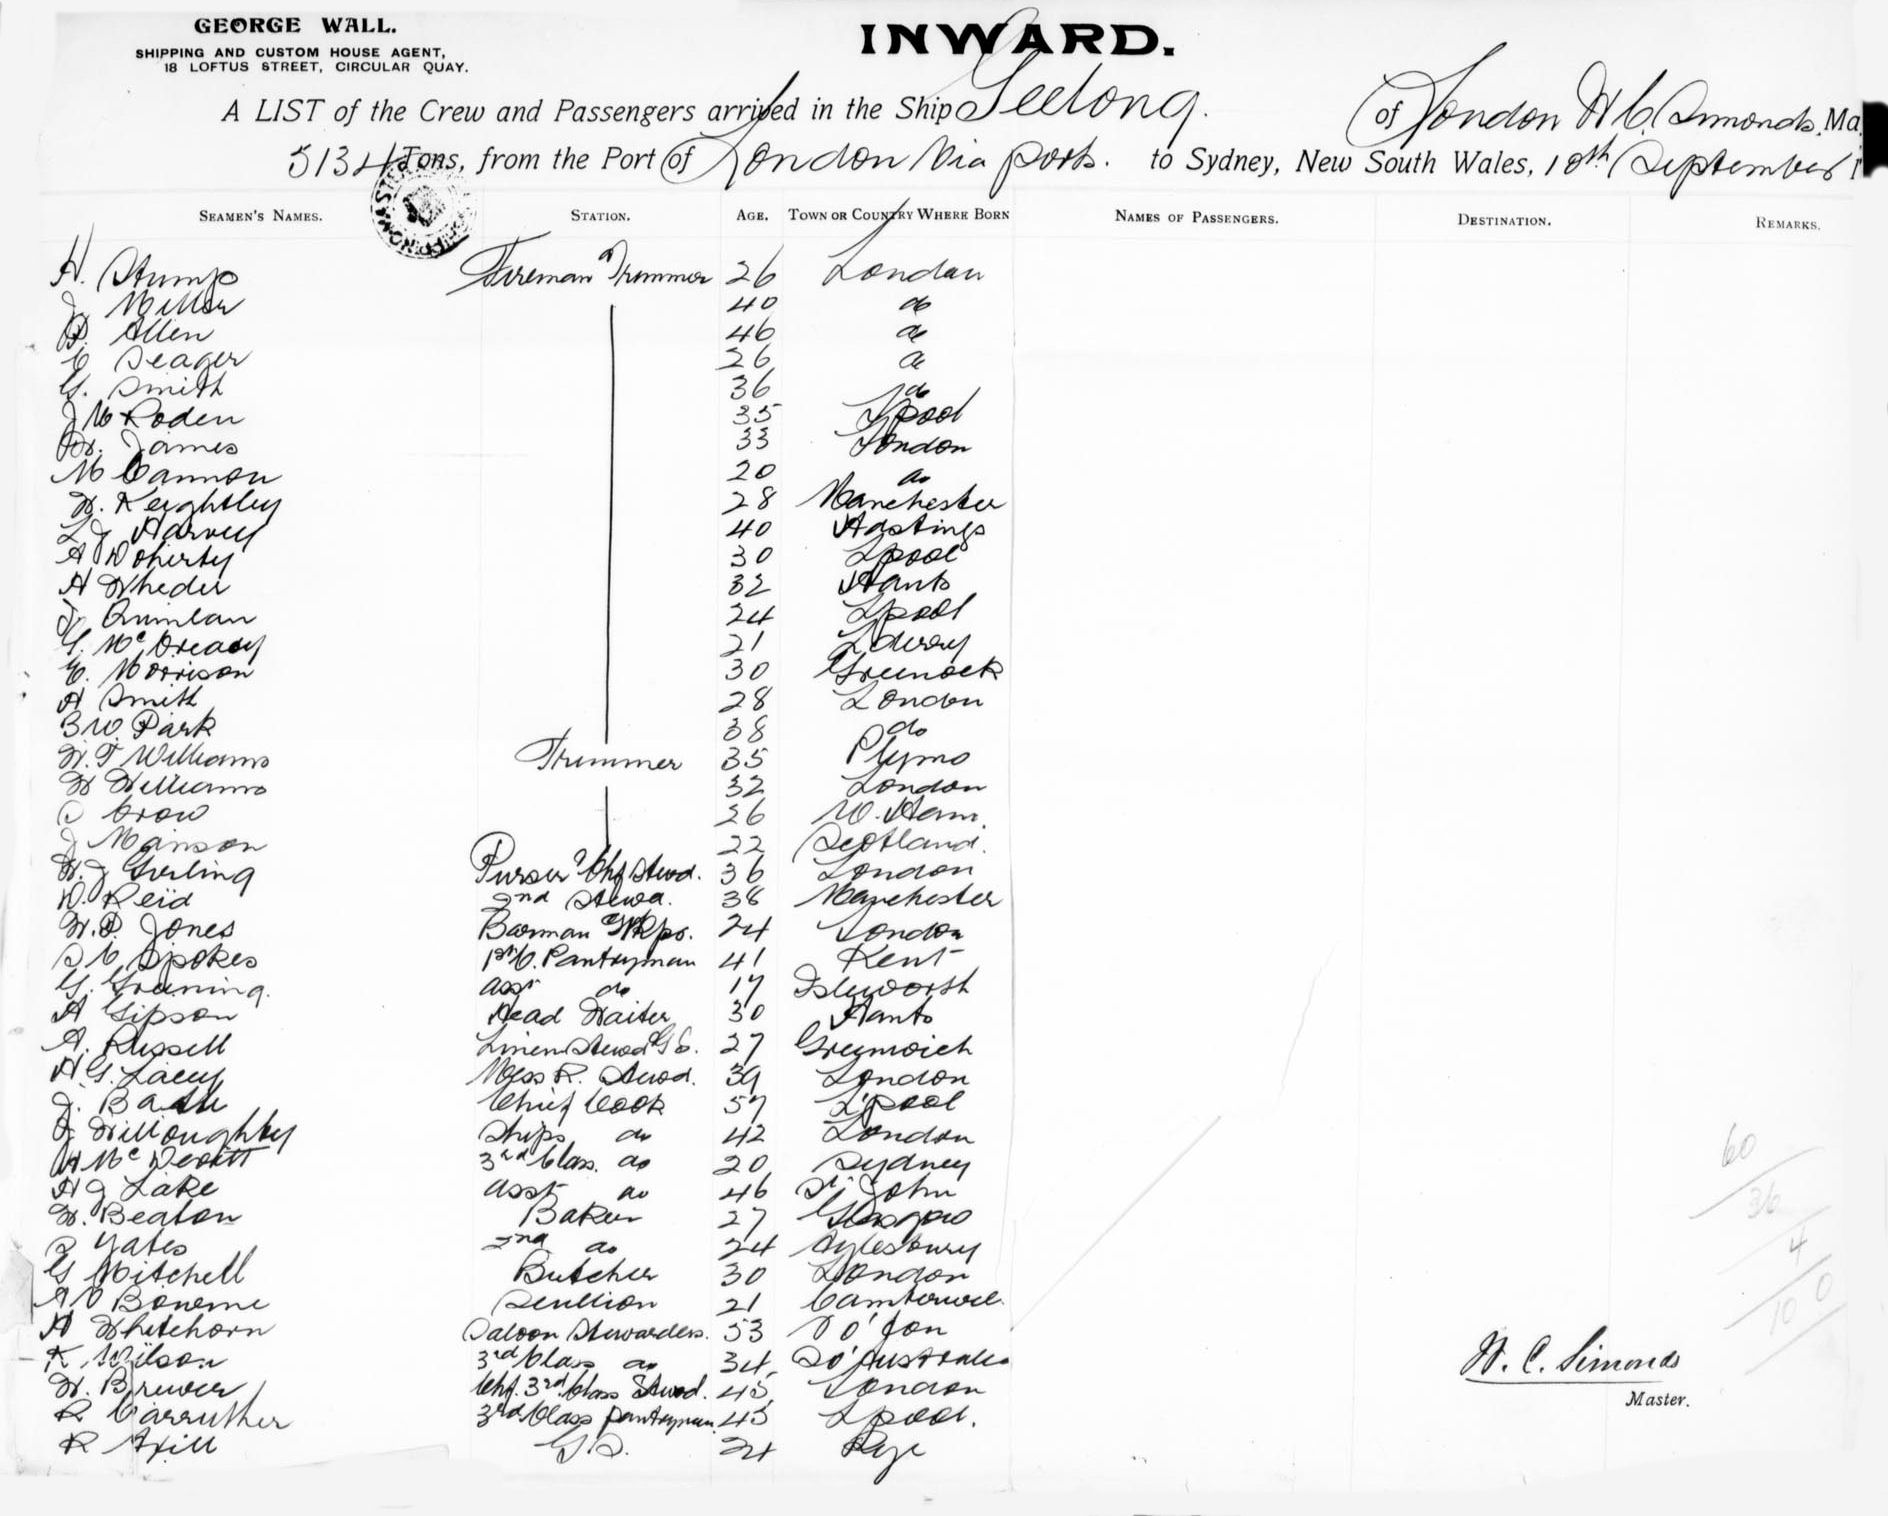 GEORGE WALL.
SHIPPING AND CUSTOM HOUSE AGENT,
18 LOFTUS STREET, CIRCULAR QUAY.
INWARD.
A LIST of the Crew and Passengers arrived in the Ship Geelong. of London H C. Simonds, Ma
5134 Tons, from the Port of London Via ports. to Sydney, New South Wales, 18th September 1
SEAMEN'S NAMES. STATION. AGE. TOWN OR COUNTRY WHERE BORN NAMES OF PASSENGERS. DESTINATION. REMARKS.
H. Stump Fireman & Trimmer 26 London
J. Miller 40 do
P. Allen 46 do
C Seager 26 do
G. Smith 36 do
J W Roden 35 Lpool
Wm. James 33 London
M Cannon 20 do
W. Keightley 28 Manchester
L J Harvey 40 Hastings
A Doherty 30 Lpool
H Wheeler 32 Hants
J. Quinlan 24 Lpool
G. McCready 21 Lderry
E. Morrison 30 Greenock
H Smith 28 London
B W. Park 38 do
W. T Williams Trimmer 35 Plymo
W Williams 32 London
C Crow 26 W. Ham.
J Manson 22 Scotland.
W. J Girling Purser & Chf Stwd. 36 London
D. Reid 2nd Stewd. 38 Manchester
W. P. Jones Barman & 24 London
S C Spokes 1st C. Pantryman 41 Kent
G. Greening. asst do 17 Isleworth
A Gipson Head Waiter 30 Hants
A. Russell Linen Stwd & G S. 27 Greenwich
H G. Lacey Mess R. Stwd. 39 London
J. Chief Cook 57 L'pool
J Willoughby Ships do 42 London
H McDevitt 3rd Class. do 20 Sydney
H J Lake asst do 46 St John
W. Beaton Baker 27 Glasgow
S Yates 2nd do 24 Aylesbury
G Mitchell Butcher 30 London
A V Scullion 21 Camberwell
H Whitehorn Saloon Stewardess. 53
K Wilson 3rd Class do 34 So' Australia
W. Brewer Chf. 3rd Class Stwd. 45 London
R Carruther 3rd Class pantryman 45 Lpool.
R Axill G. S. 24 Rye
60
36
4
0
10
H. C. Simonds
Master.